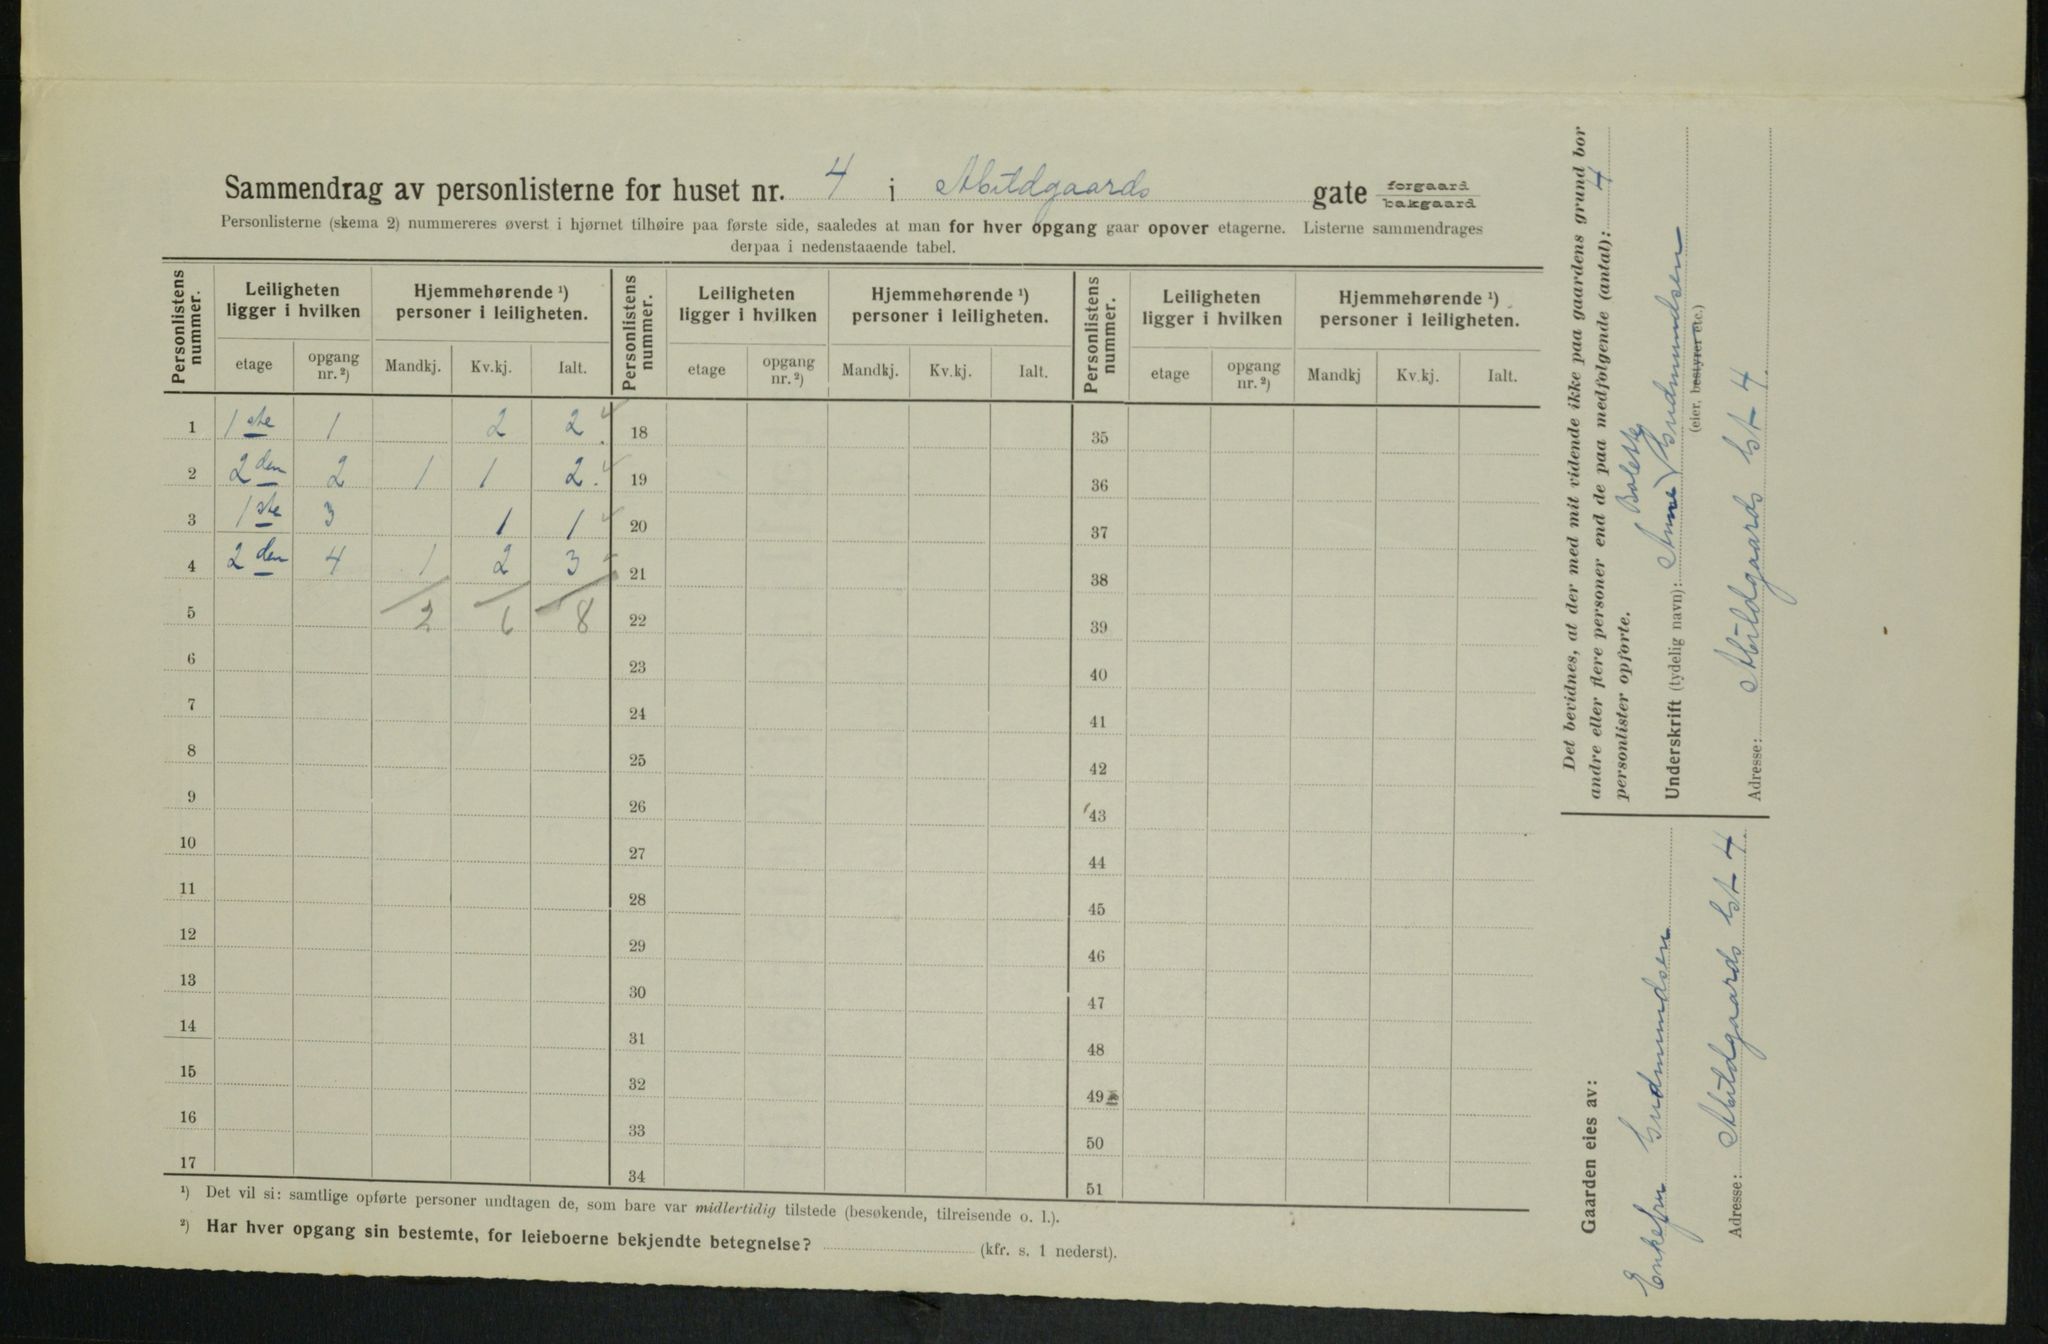 Sammendrag av personlisterne for huset nr. 4 i Abildgaards gate forgaard bakgaard
Personlisterne (skema 2) nummereres øverst i hjørnet tilhøire paa første side, saaledes at man for hver opgang gaar opover etagerne. Listerne sammendrages
derpaa i nedenstaaende tabel.
Personlistens nummer. Leiligheten ligger i hvilken Hjemmehørende ¹) personer i leiligheten. Personlistens nummer. Leiligheten ligger i hvilken Hjemmehørende ¹) personer i leiligheten. Personlistens nummer. Leiligheten ligger i hvilken Hjemmehørende ¹) personer i leiligheten.
etage opgang nr. ²) Mandkj. Kv.kj. Ialt. etage opgang nr. ²) Mandkj. Kv.kj. Ialt. etage opgang nr. ²) Mandkj Kv.kj. Ialt.
1 1ste 1 2 2 18 35
2 2den 2 1 1 2. 19 36
3 1ste 3 1 1 20 37
4 2den 4 1 2 3 21 38
5 2 6 8 22 39
6 23 40
7 24 41
8 25 42
9 26 43
10 27 44
11 28 45
12 29 46
13 30 47
14 31 48
15 32 49
16 33 50
17 34 51
¹) Det vil si: samtlige opførte personer undtagen de, som bare var midlertidig tilstede (besøkende, tilreisende o. l.).
²) Har hver opgang sin bestemte, for leieboerne bekjendte betegnelse? (kfr. s. 1 nederst).
Det bevidnes, at der med mit vidende ikke paa gaardens grund bor
andre eller flere personer end de paa medfølgende (antal): 4
personlister opførte.
Bolette
Underskrift (tydelig navn): Anne Gudmundsen
(eier, bestyrer etc.)
Adresse: Abildgaards Gt 4
Gaarden eies av:
Enkefru Gudmundsen
Adresse: Abildgaards Gt 4